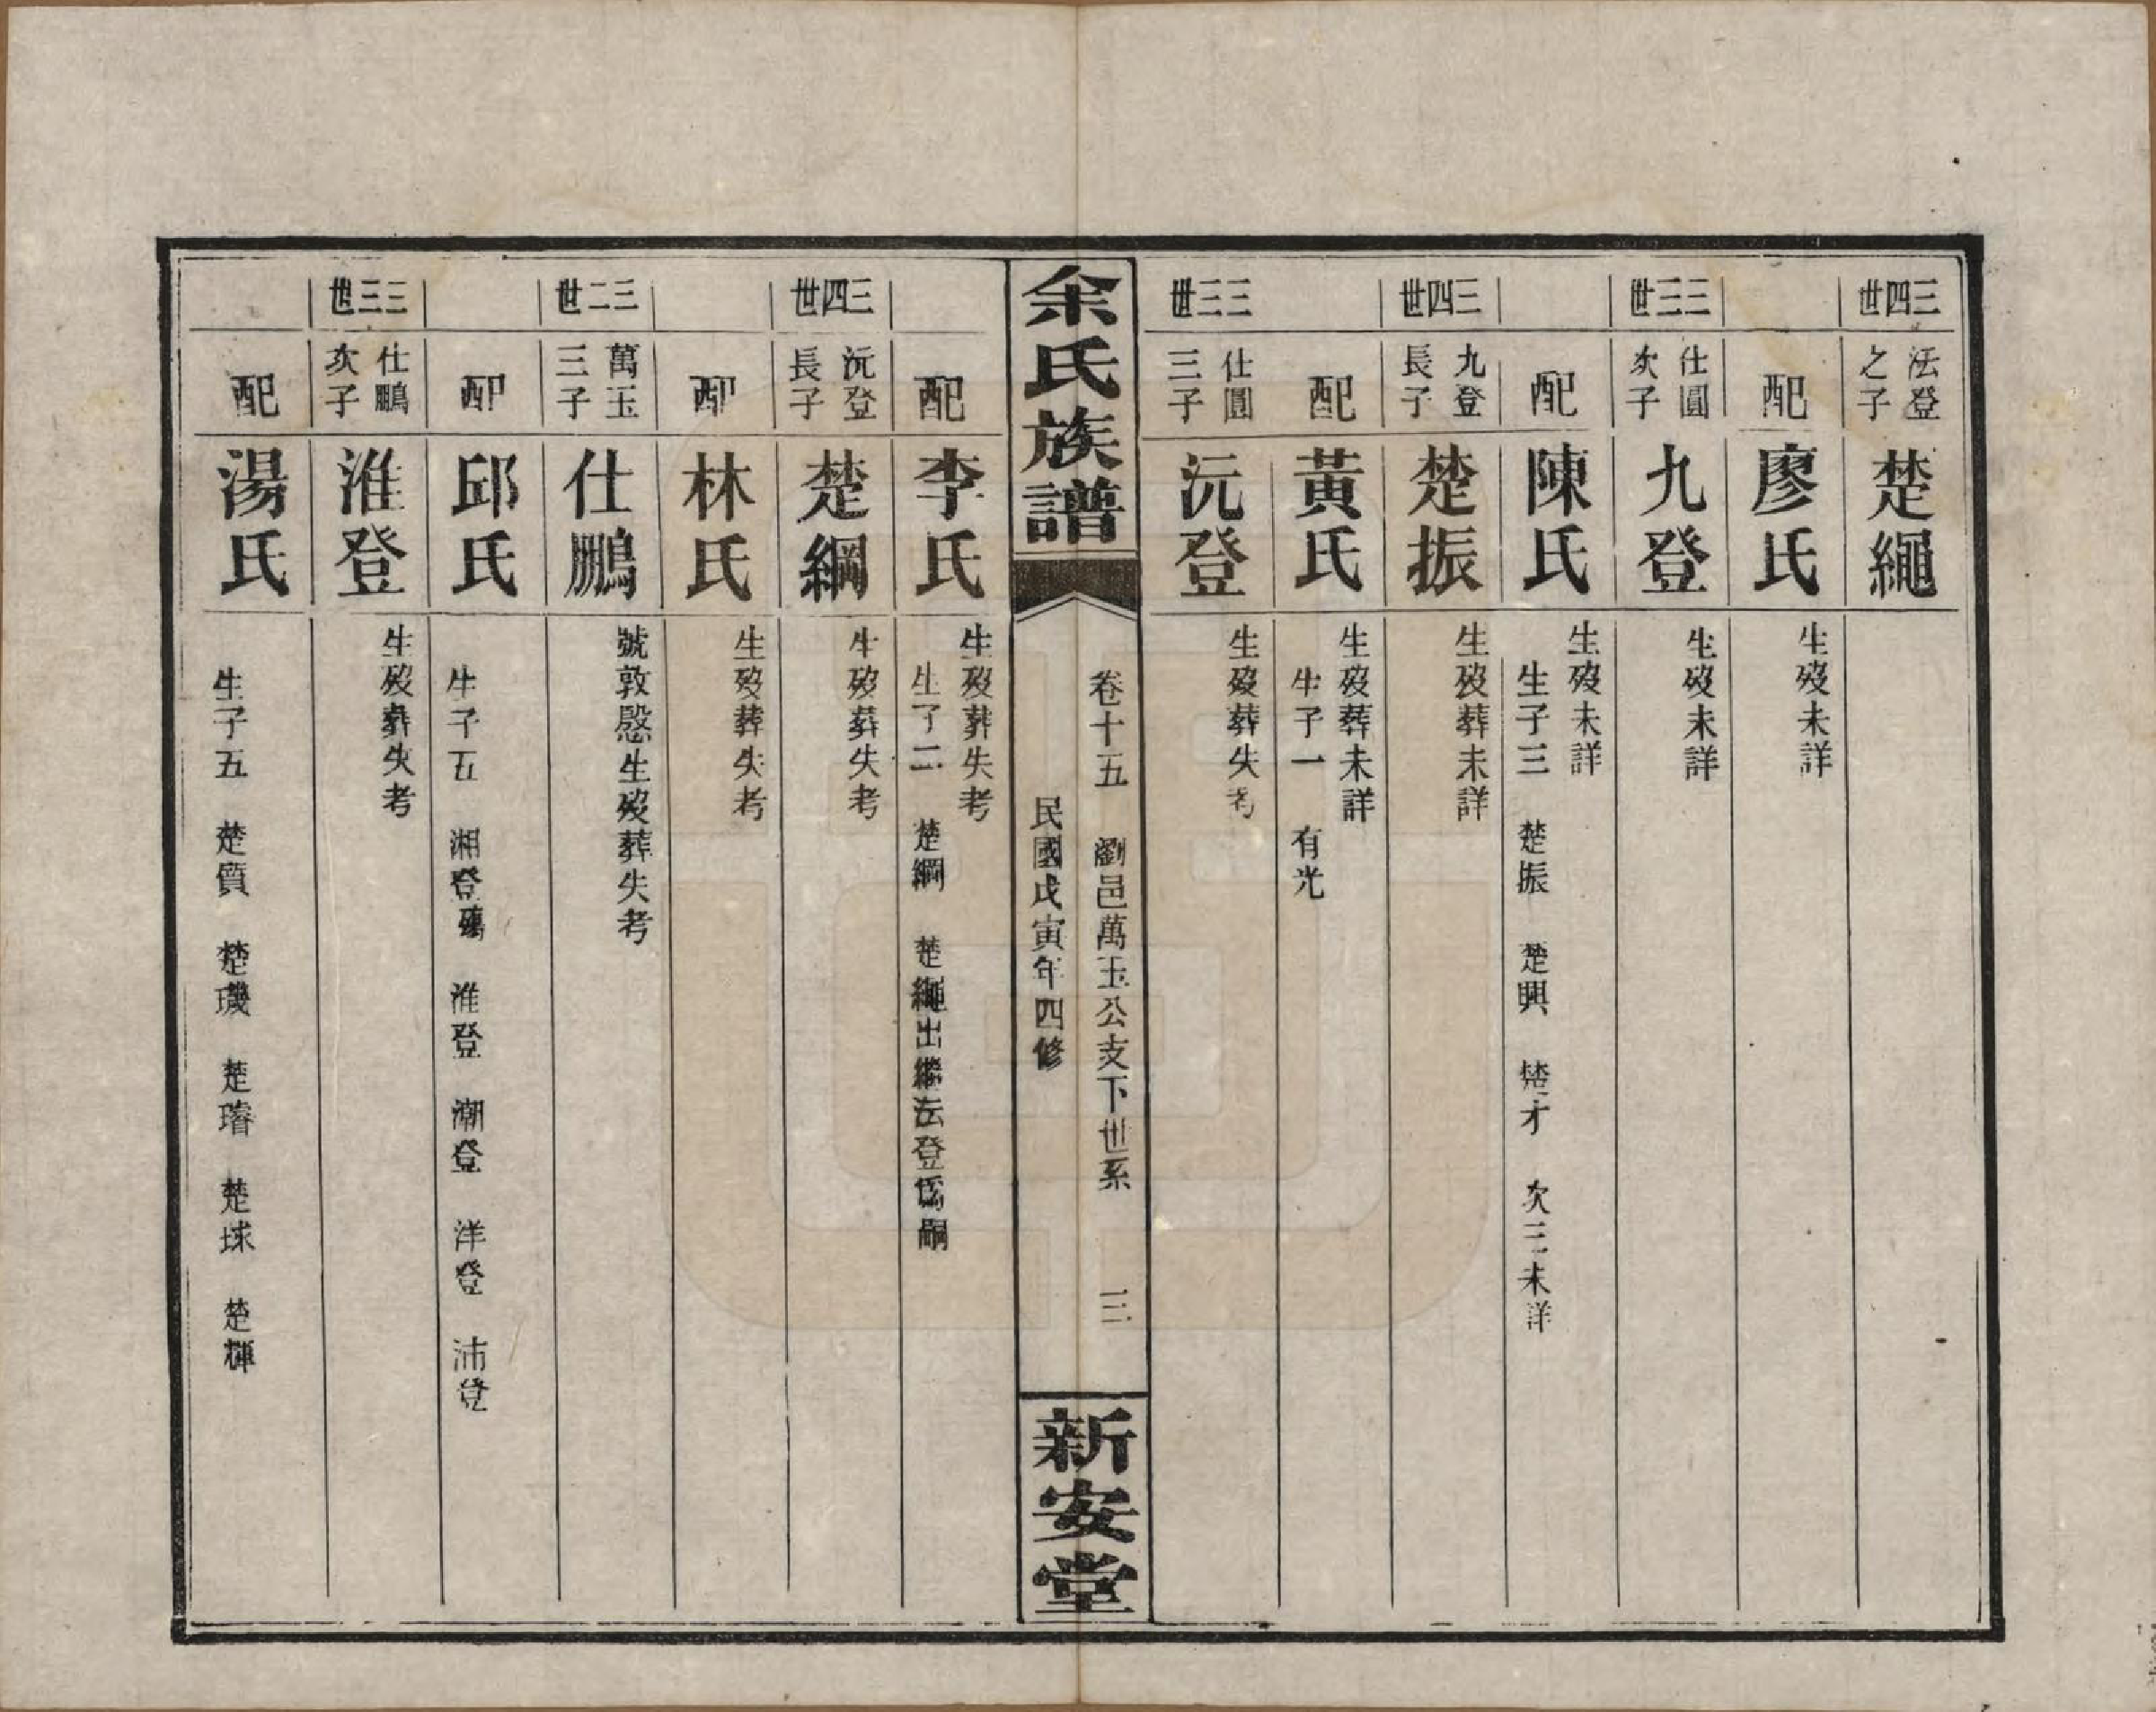 三四世
沄登之子
楚繩
配
廖氏
生歿未詳
三三世
仕圓次子
九登
生歿未詳
配
陳氏
生歿未詳
生子三　楚振　楚興　楚才　次三未詳
三四世
九登長子
楚振
生歿葬未詳
配
黃氏
生歿葬未詳
生子一　有光
三三世
仕圓三子
沅登
生歿葬失考
余氏族譜
卷十五　瀏邑萬玉公支下世系　三
民國戊寅年四修
新安堂
配
李氏
生歿葬失考
生子二　楚綱　楚繩出繼沄登爲嗣
三四世
沅登長子
楚綱
生歿葬失考
配
林氏
生歿葬失考
三二世
萬玉三子
仕鵬
號敦慇生歿葬失考
配
邱氏
生子五　湘登殤　淮登　潮登　洋登　沛登
三三世
仕鵬次子
淮登
生歿葬失考
配
湯氏
生子五　楚質　楚璣　楚璿　楚球　楚輝